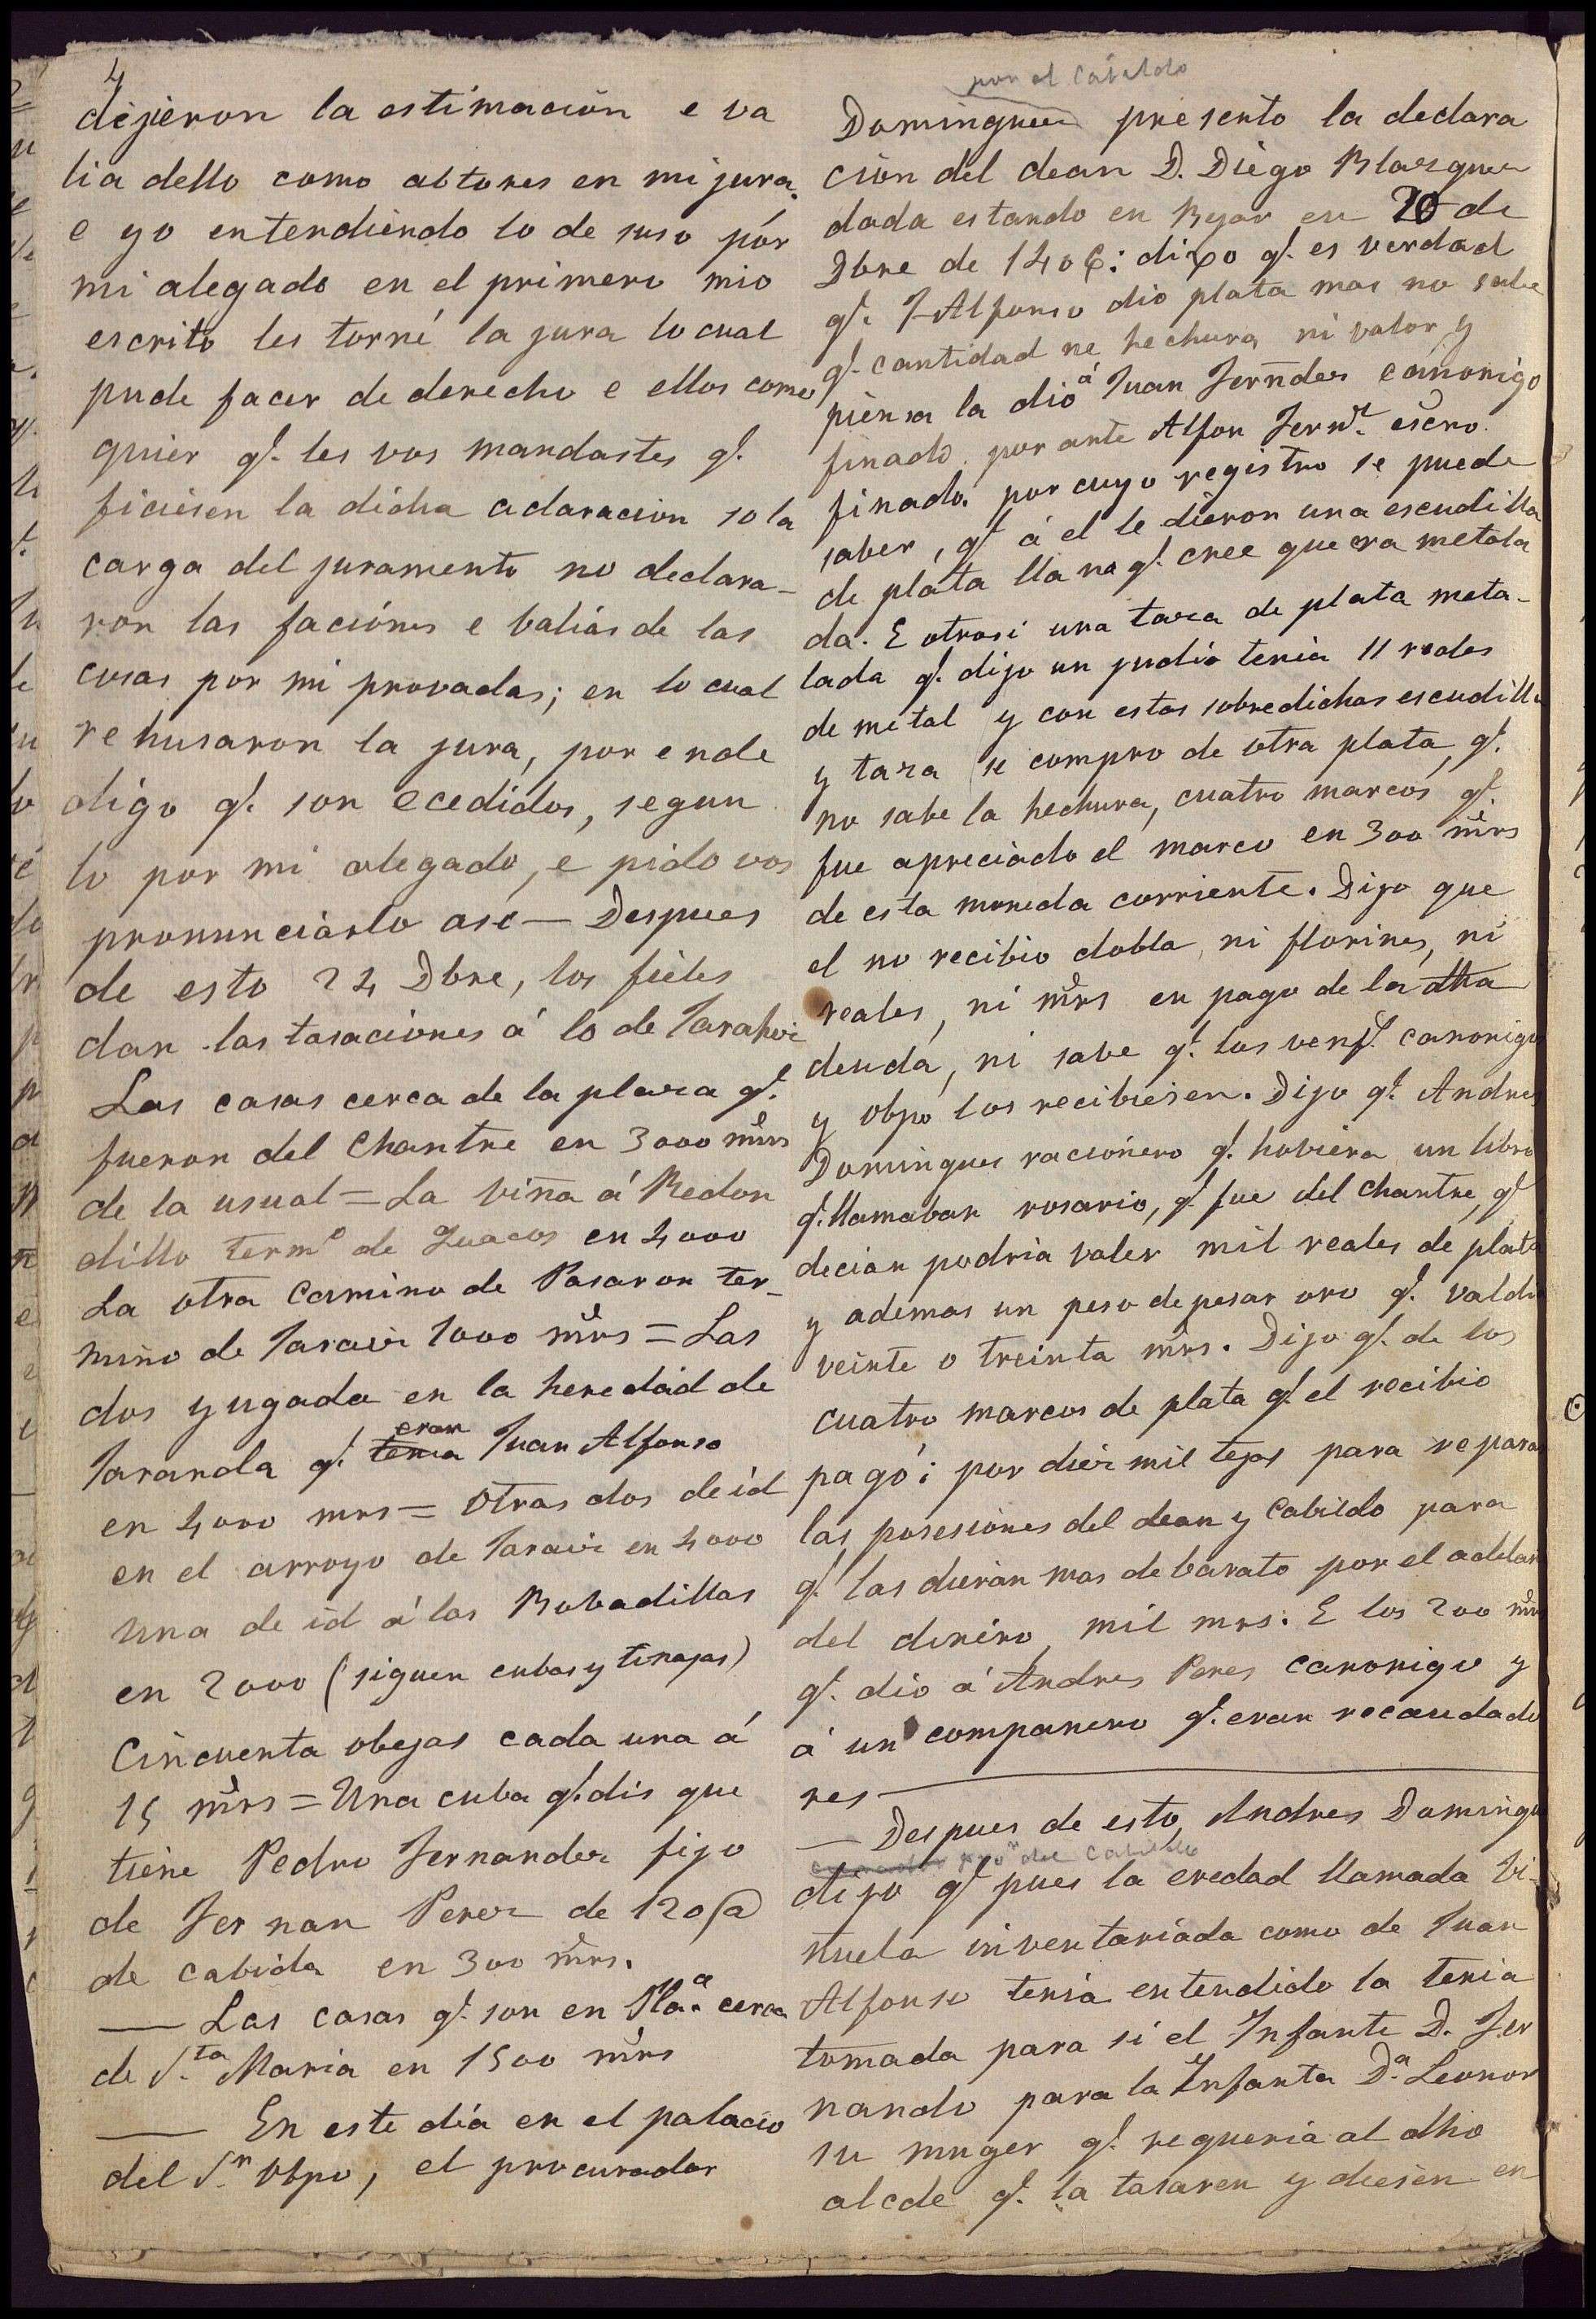 4
dijeron la estimación e va
lia dello como abtores en mi jura.
e yo entendiendo lo de suso pór
mi alegado en el primero mio
escrito les torné la jura lo cual
pude facer de derecho e ellos como
quier q.^e les vos mandastes q.^e
ficiesen la dicha aclaracion so la
carga del juramento no declara-
ron las faciónes e baliás de las
cosas por mi provadas; en lo cual
rehusaron la jura, por ende
digo q.^e son ecedidos, segun
lo por mi alegado, e pido vos
pronunciarlo asi — Despues
de esto 24 Dbre, los fieles
dan las tasaciones á lo de Jarahiz
Las casas cerca de la plaza q.^e
fueron del Chantre en 3000 mrs
de la usual = La viña á Redon
dillo term.^o de Zuacos en 4000
La otra Camino de Pasaron ter-
mino de Jaraiz 1000 mrs = Las
dos yugada en la heredad de
eran
Jaranda q.^e tenia Juan Alfonso
en 4000 mrs = Otras dos de id
en el arroyo de Jaraiz en 4000
Una de id á las Bobadillas
en 2000 (siguen cubas y tinajas)
Cincuenta obejas cada una á
15 mrs = Una cuba q.^e dis que
tiene Pedro Fernandez fijo
de Fernan Perez de 120 @
de cabida en 300 mrs.
— Las casas q.^e son en Pla.^a cerca
de S.^ta Maria en 1500 mrs
— En este día en el palacio
del S.^r Obpo, el procurador
por el Cabildo
Dominguez presento la declara
ción del dean D. Diego Blazquez
dada estando en Bejar en 20 de
Dbre de 1406: dixo q.^e es verdad
q.^e J. Alfonso dio plata mas no sabe
q.^e cantidad ne hechura ni valor y
piensa la dió á Juan Fernndes canonigo
finado por ante Alfon Fern.^z escno.
finado por cuyo registro se puede
saber, q.^e á el le dieron una escudilla
de plata llana q.^e cree que era metala
da. E otrosi una taza de plata meta-
lada q.^e dijo un judio tenia 11 reales
de metal y con estas sobredichas escudilla
y taza se compro de otra plata, q.^e
no sabe la hechura, cuatro marcos q.^e
fue apreciado el marco en 300 mrs
de esta moneda corriente. Dijo que
el no recibio dobla, ni florines, ni
reales, ni mrs en pago de la dha
deuda, ni sabe q.^e los canonigos
y Obpo los recibiesen. Dijo q.^e Andres
Domingues racionero q.^e hobiera un libro
q.^e llamaban rosario, q.^e fue del Chantre, q.^e
decian podria valer mil reales de plata
y ademas un peso de pesar oro q.^e valdr
veinte o treinta mrs. Dijo q.^e de los
cuatro marcos de plata q.^e el recibio
pagó: por diez mil tejas para reparar
las posesiones del dean y Cabildo para
q.^e las dieran mas de barato por el adelan
del dinero, mil mrs. E los 200 mrs
q.^e dio á Andres Peres canonigo y
á un companero q.^e eran recaudado
res
— Despues de esto, Andres Domingu
pro.^r del Cabildo
dijo q.^e pues la eredad llamada Vi-
ñuela inventariada como de Juan
Alfonso tenia entendido la tenia
tomada para si el Infante D. Fer
nando para la Infanta D.^a Leonor
su muger q.^e requeria al dho
alcde q.^e la tasaren y diesen en